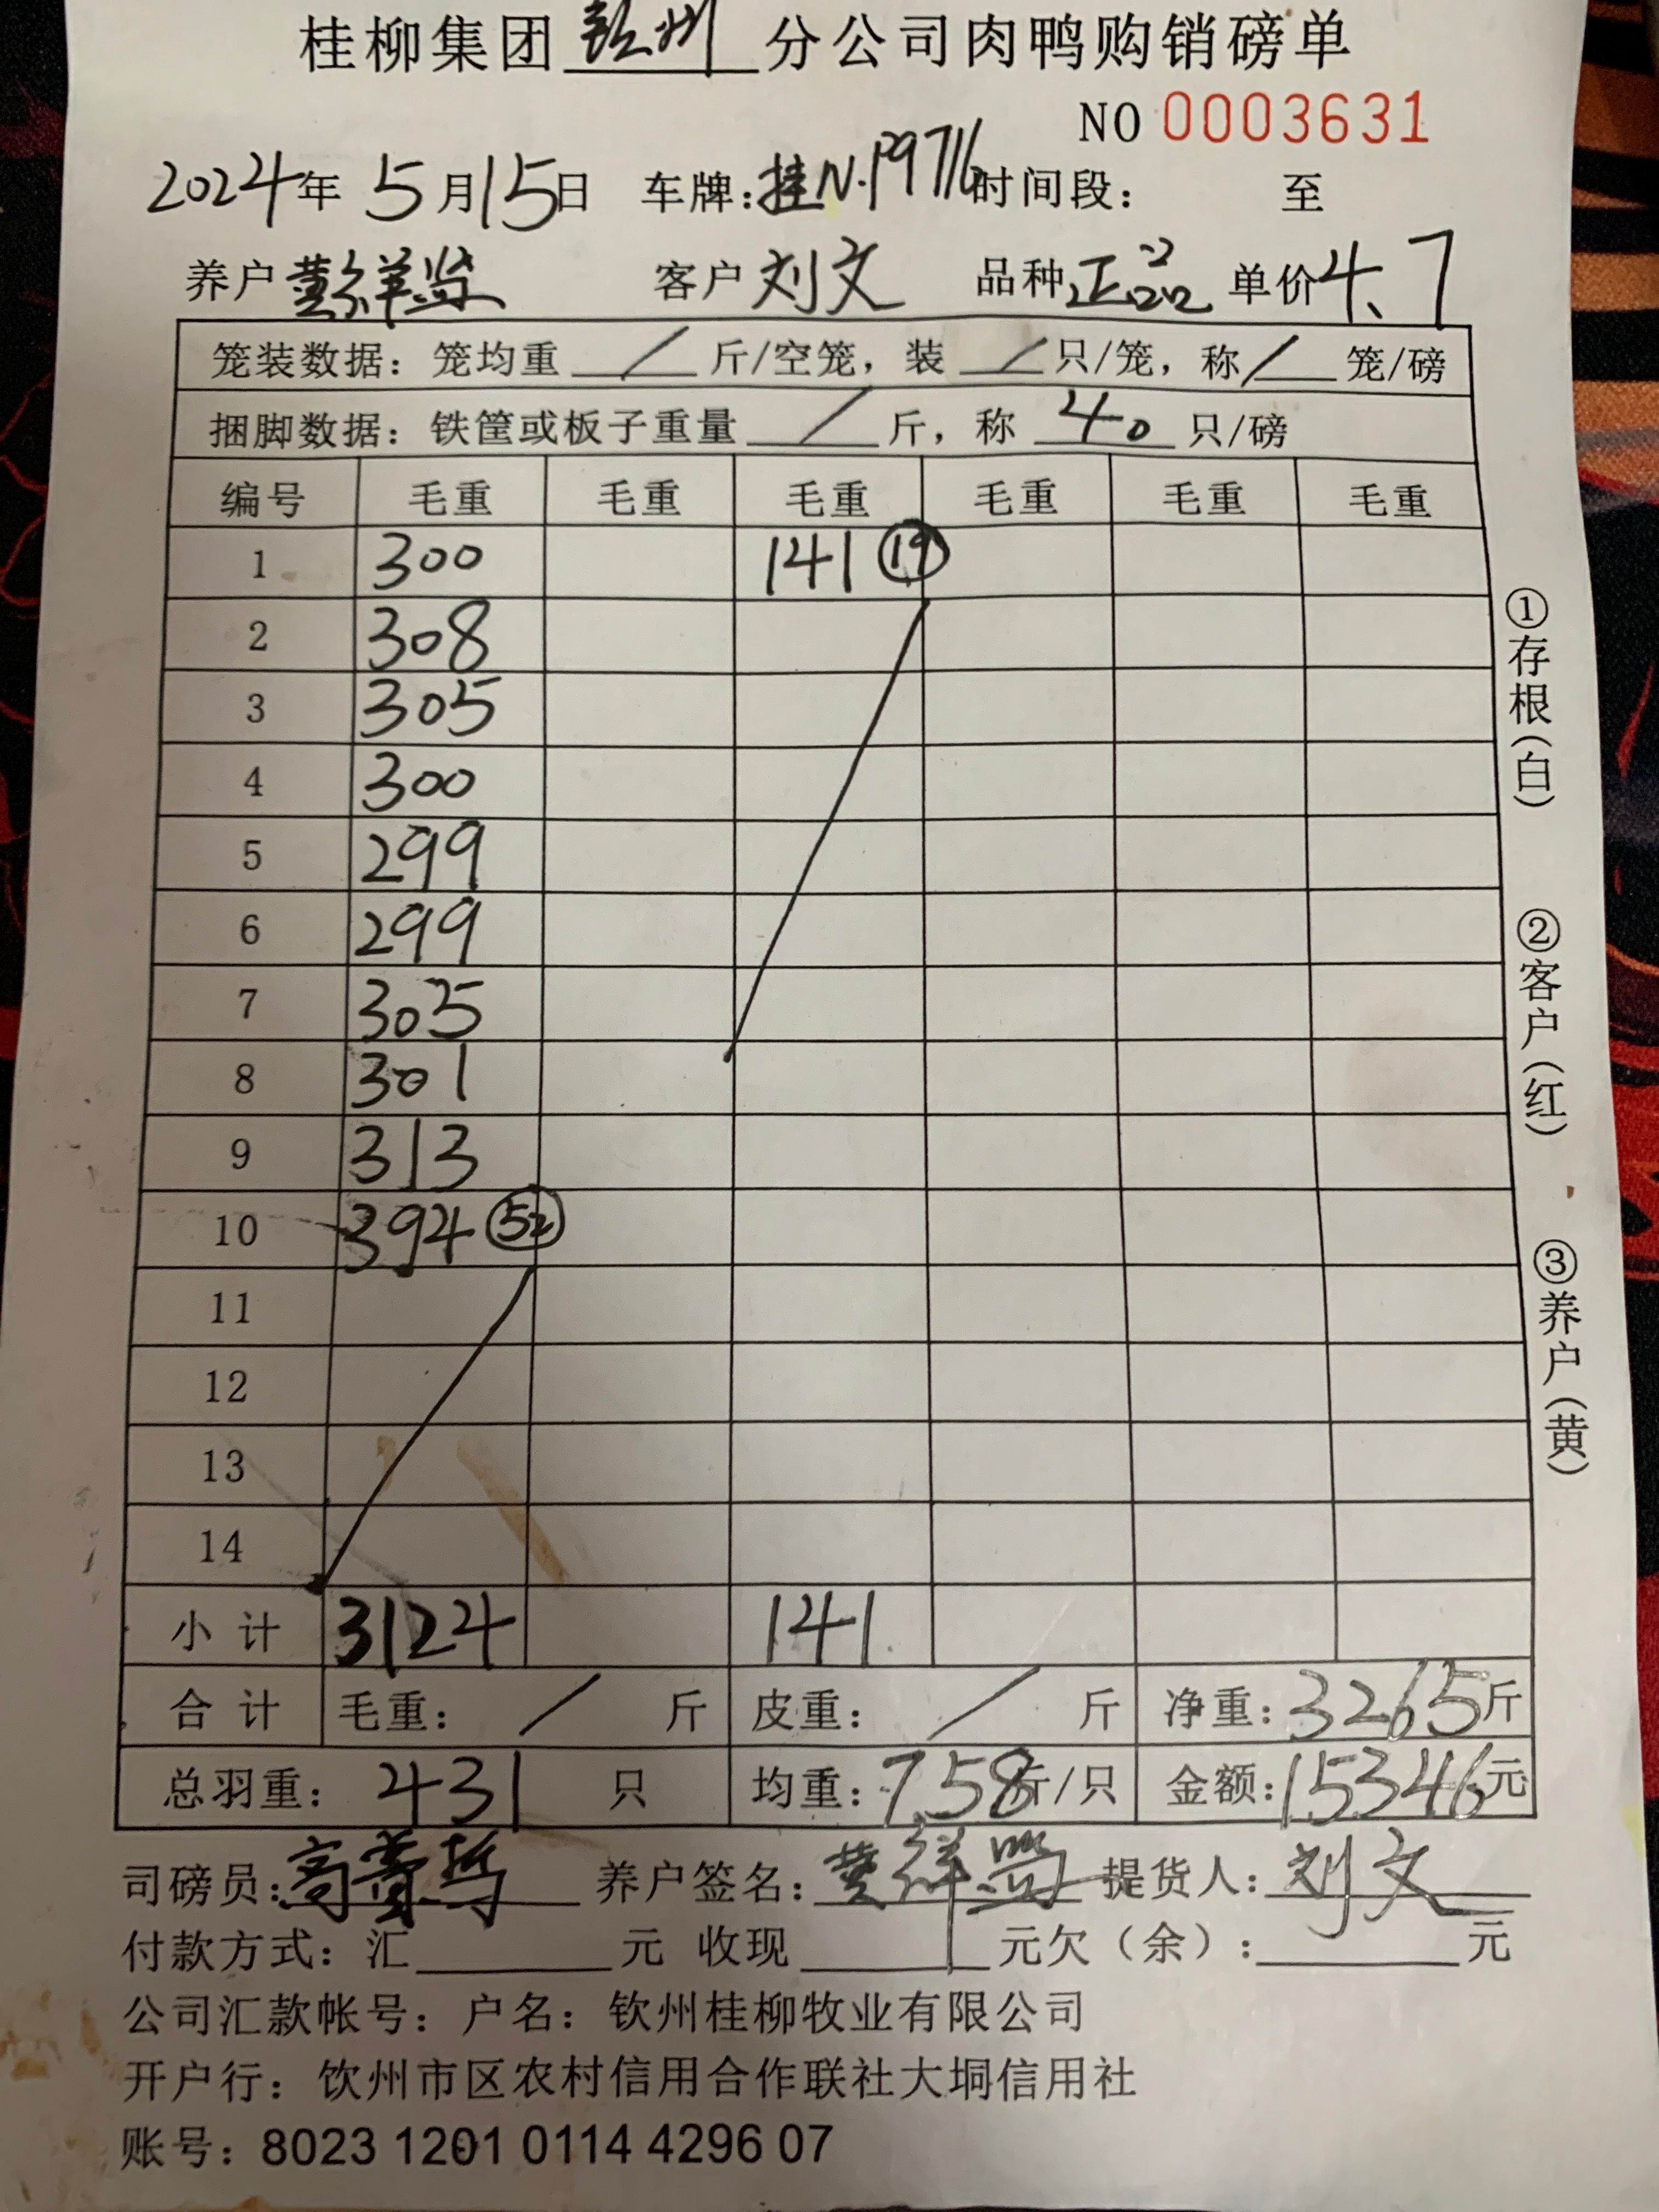 桂柳集团 钦州 分公司肉鸭购销磅单
NO 0003631
2024年 5月15日 车牌:桂N·P9716 时间段: 至
养户 黄祥 客户 刘文 品种 正品 单价 4.7
笼装数据: 笼均重 / 斤/空笼, 装 / 只/笼, 称 / 笼/磅
捆脚数据: 铁筐或板子重量 / 斤, 称 40 只/磅
编号 毛重 毛重 毛重 毛重 毛重 毛重
1 300 141 ⑲
2 308
3 305
4 300
5 299
6 299
7 305
8 301
9 313
10 394 52
11
12
13
14
小计 3124 141
合计 毛重: / 斤 皮重: / 斤 净重: 3265斤
总羽重: 431 只 均重: 7.58斤/只 金额: 15346元
司磅员: 高 养户签名: 黄祥 提货人: 刘文
付款方式: 汇 元 收现 元欠(余): 元
公司汇款帐号: 户名: 钦州桂柳牧业有限公司
开户行: 饮州市区农村信用合作联社大垌信用社
账号: 8023 1201 0114 4296 07
①存根(白)
②客户(红)
③养户(黄)